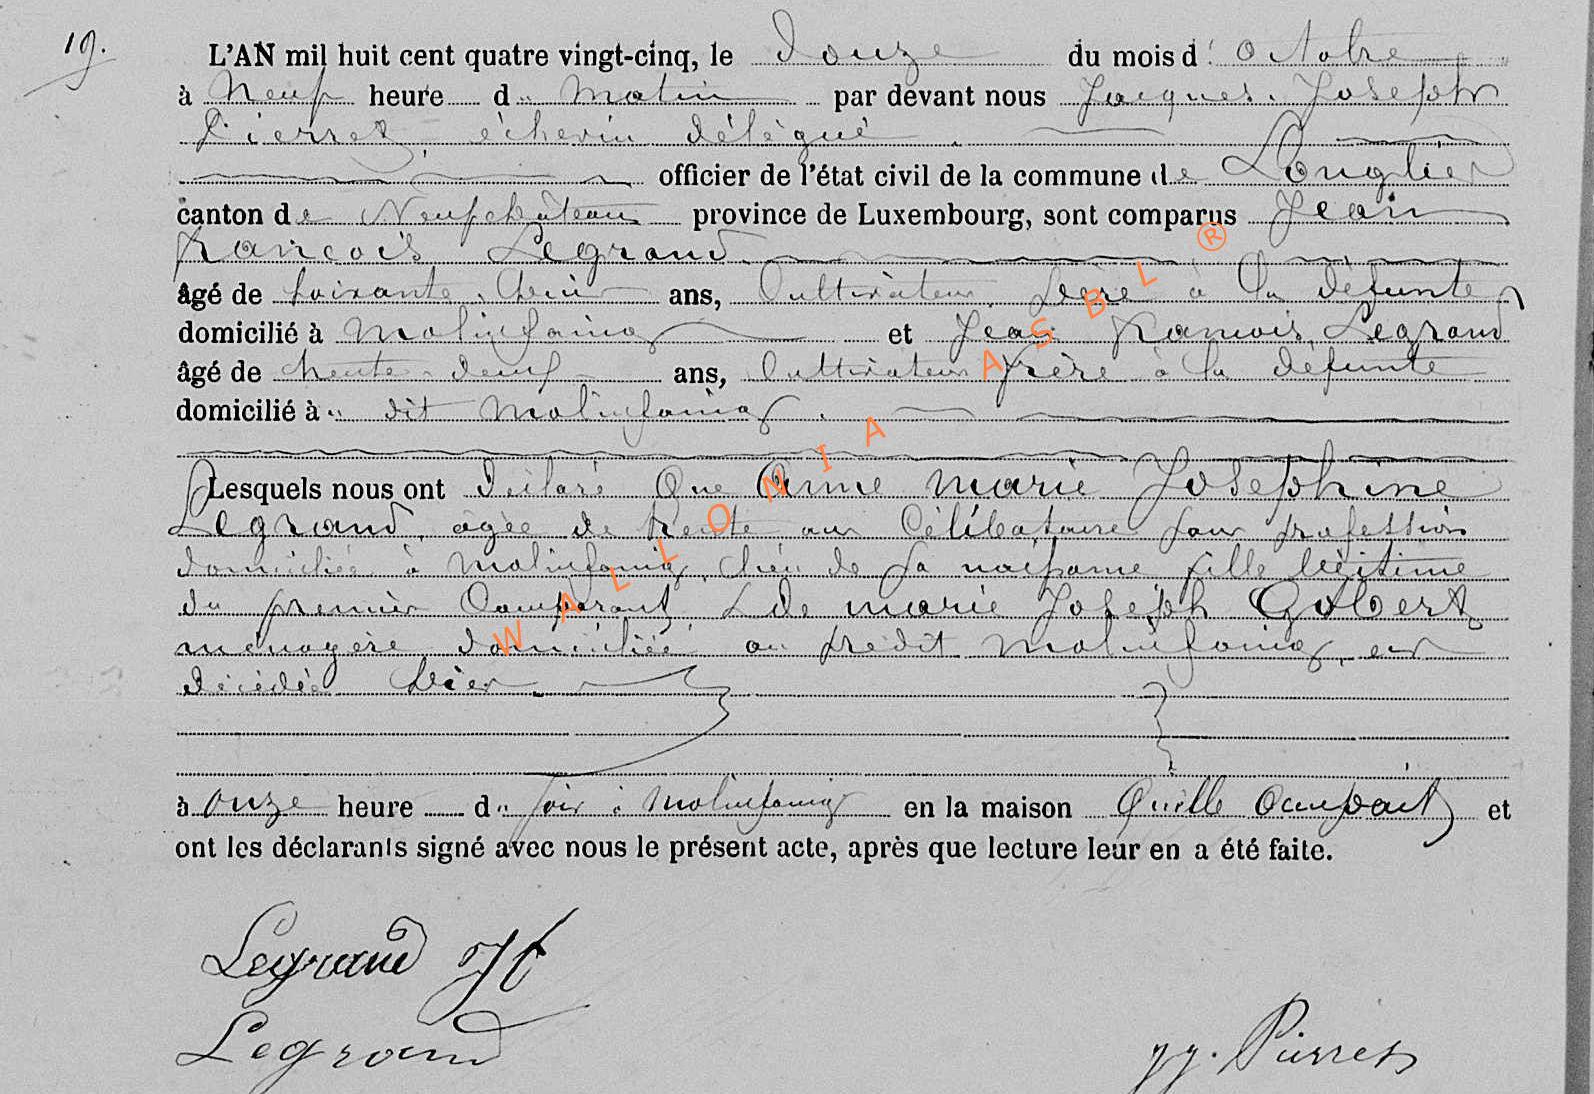 19.
L'AN mil huit cent quatre vingt-cinq, le douze du mois d' octobre
à neuf heure d matin par devant nous Jacques Joseph
Pierret, échevin délégué
officier de l'état civil de la commune de Longlier
canton de Neufchâteau province de Luxembourg, sont comparus Jean
francois Legrand
âgé de soixante ans, Cultivateur père à la défunte
domicilié à Molinfaing et Jean francois Legrand
âgé de trente-deux ans, Cultivateur frère à la défunte
domicilié à dit Molinfaing
Lesquels nous ont déclaré que Anne Marie Joséphine
Legrand, agée de trente ans Célibataire sans profession
domiciliée à Molinfaing, lieu de sa naissance, fille légitime
du premier Comparant & de marie Joseph Gobert
ménagère domiciliée au prédit Molinfaing, est
décédée hier
à onze heure d soir à Molinfaing en la maison qu'elle occupait et
ont les déclarants signé avec nous le présent acte, après que lecture leur en a été faite.
Legrand Jf
Legrand
JJ. Pierret
WALLONIA ASBL ®